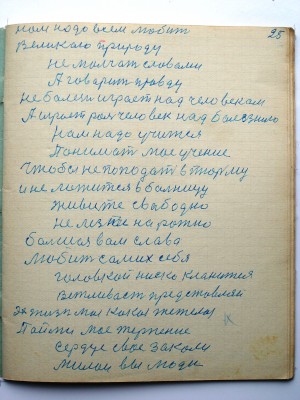 25
нам надо всем любит
Великаю природу
не молчат словами
А говорит правду
не болезн играет над человекам
А играет роя человек над болезнию
Нам надо учится
Понимат мое учение
Чтобы не поподат в тюрму
и не ложится в болницу
живите свабодно
не лезте на рожно
болшая вам слава
Любит самих себя
головкой ниско кланятся
Ветливаст представляй
За жизн мая какая тяжолоя
Пойми мое терпение
Сердце свае закали
милаи вы люди